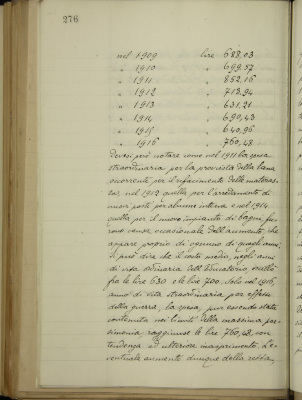 276
nel 1909 lire 688.03
" 1910 " 699.57
" 1911 " 852.16
" 1912 " 713.94
" 1913 " 631.21
" 1914 " 690.43
" 1915 " 640.96
" 1916 " 760.48
Devesi però notare come nel 1911 la spesa
straordinaria per la provvista della lana
occorrente per il rifacimento delle materas-
se, nel 1912 quella per l'arredamento di
nuovi posti per alunne interne e nel 1914
quella per il nuovo impianto di bagni, fu-
rono cause occasionali dell'aumento, che
appare proprio di ognuno di quegli anni.
Si può dire che il costo medio, negli anni
di vita ordinaria dell'Educatorio, oscillò
fra le lire 630 e le lire 700. Solo nel 1916,
anno di vita straordinaria per effetto
della guerra, la spesa, pur essendo stata
contenuta nei limiti della massima par-
simonia raggiunse le lire 760,48, con
tendenza ad ulteriore inasprimento. L'e-
ventuale aumento dunque della retta,